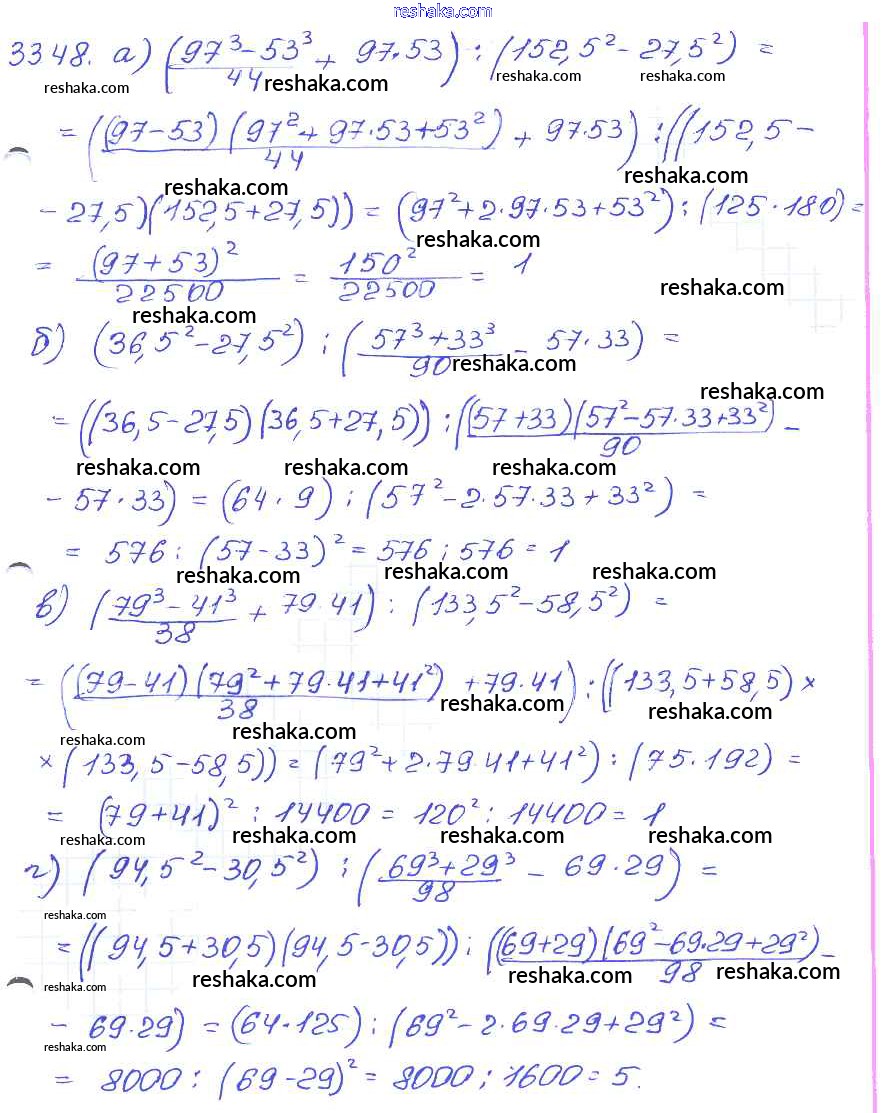 reshaka.com
3348. а) ((97³-53³)/44 + 97·53) : (152,5² - 27,5²) =
reshaka.com reshaka.com reshaka.com reshaka.com
= ((97-53)(97²+97·53+53²)/44 + 97·53) : ((152,5-
reshaka.com reshaka.com
- 27,5)(152,5+27,5)) = (97²+2·97·53+53²) : (125·180) =
reshaka.com
= (97+53)²/22500 = 150²/22500 = 1
reshaka.com
reshaka.com
б) (36,5²-27,5²) : ((57³+33³)/90 - 57·33) =
reshaka.com
reshaka.com
= ((36,5-27,5)(36,5+27,5)) : ((57+33)(57²-57·33+33²)/90 -
reshaka.com reshaka.com reshaka.com
- 57·33) = (64·9) : (57²-2·57·33+33²) =
= 576 : (57-33)² = 576 : 576 = 1
reshaka.com reshaka.com reshaka.com
в) ((79³-41³)/38 + 79·41) : (133,5²-58,5²) =
= ((79-41)(79²+79·41+41²)/38 + 79·41) : ((133,5+58,5) ×
reshaka.com reshaka.com
reshaka.com
× (133,5-58,5)) = (79²+2·79·41+41²) : (75·192) =
= (79+41)² : 14400 = 120² : 14400 = 1
reshaka.com reshaka.com reshaka.com reshaka.com
г) (94,5²-30,5²) : ((69³+29³)/98 - 69·29) =
reshaka.com
= ((94,5+30,5)(94,5-30,5)) : ((69+29)(69²-69·29+29²)/98 -
reshaka.com reshaka.com reshaka.com
- 69·29) = (64·125) : (69²-2·69·29+29²) =
reshaka.com
= 8000 : (69-29)² = 8000 : 1600 = 5.